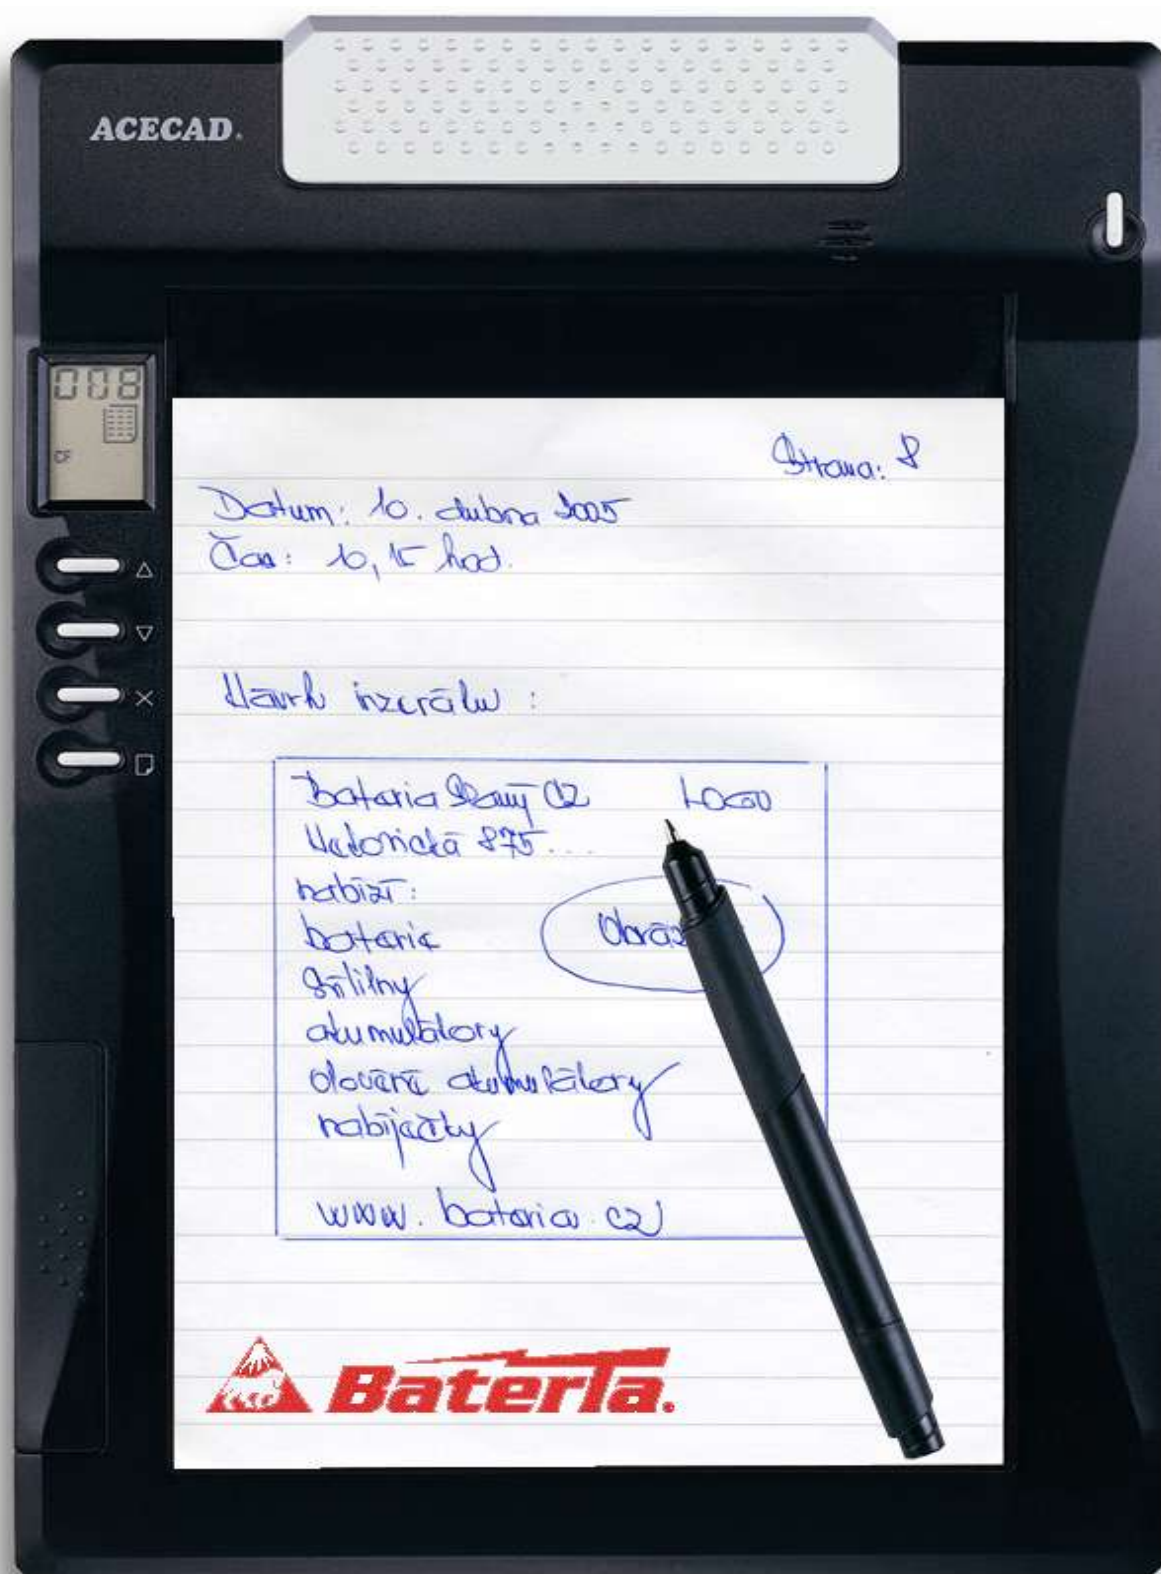 ACECAD.
008
CF
Strana: 8
Datum: 10. dubna 2005
Čas: 10,15 hod.
Návrh inzerátu :
Bateria Slaný CZ LOGO
875...
nabízí:
baterie
Obráz
svítilny
akumulátory
olověné akumulátory
nabíječky
www.bateria.cz
Bateria.